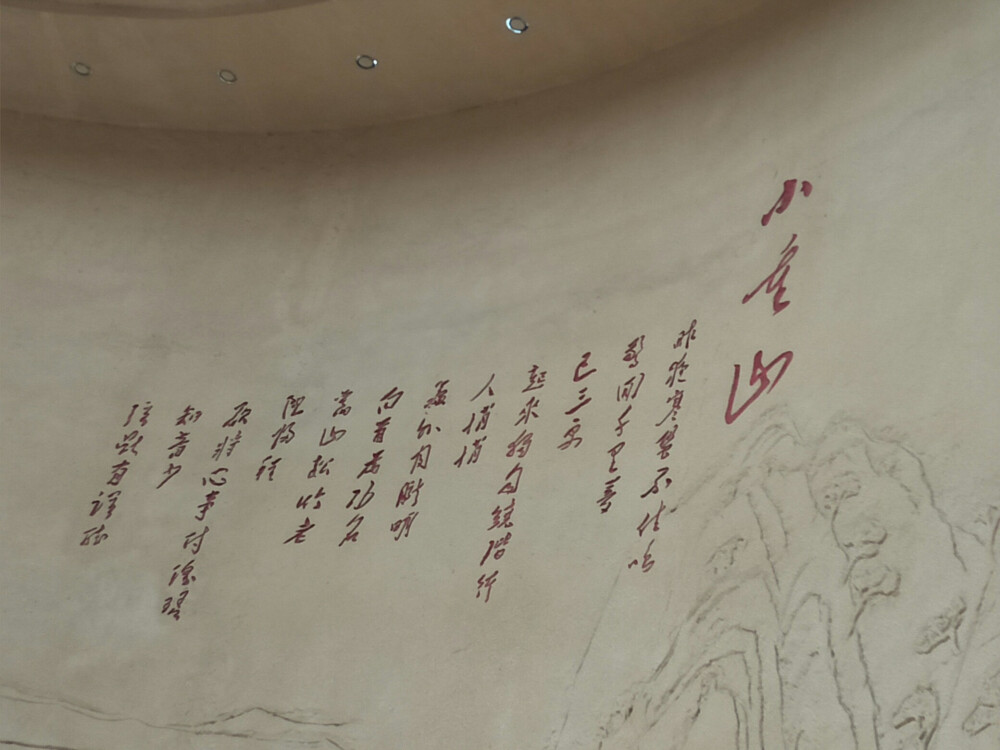 小重山
昨夜寒蛩不住鸣
惊回千里梦
已三更
起来独自绕階行
人悄悄
簾外月胧明
白首为功名
舊山松竹老
阻归程
欲将心事付瑶琴
知音少
弦断有谁听